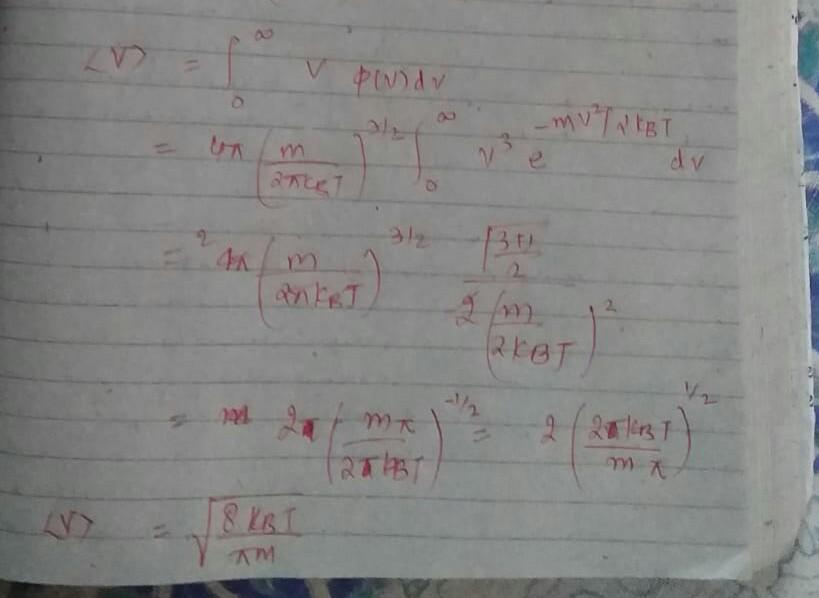 <V> = ∫₀^∞ V φ(V)dV
= 4π (m / 2πK_BT)^3/2 ∫₀^∞ v³ e^-mv²/2K_BT dv
= ² 4π (m / 2πK_BT)^3/2 Γ(3+1 / 2) / 2 (m / 2K_BT)²
= 2 (mπ / 2K_BT)^-1/2 = 2 (2K_BT / mπ)^1/2
<V> = √(8K_BT / πm)